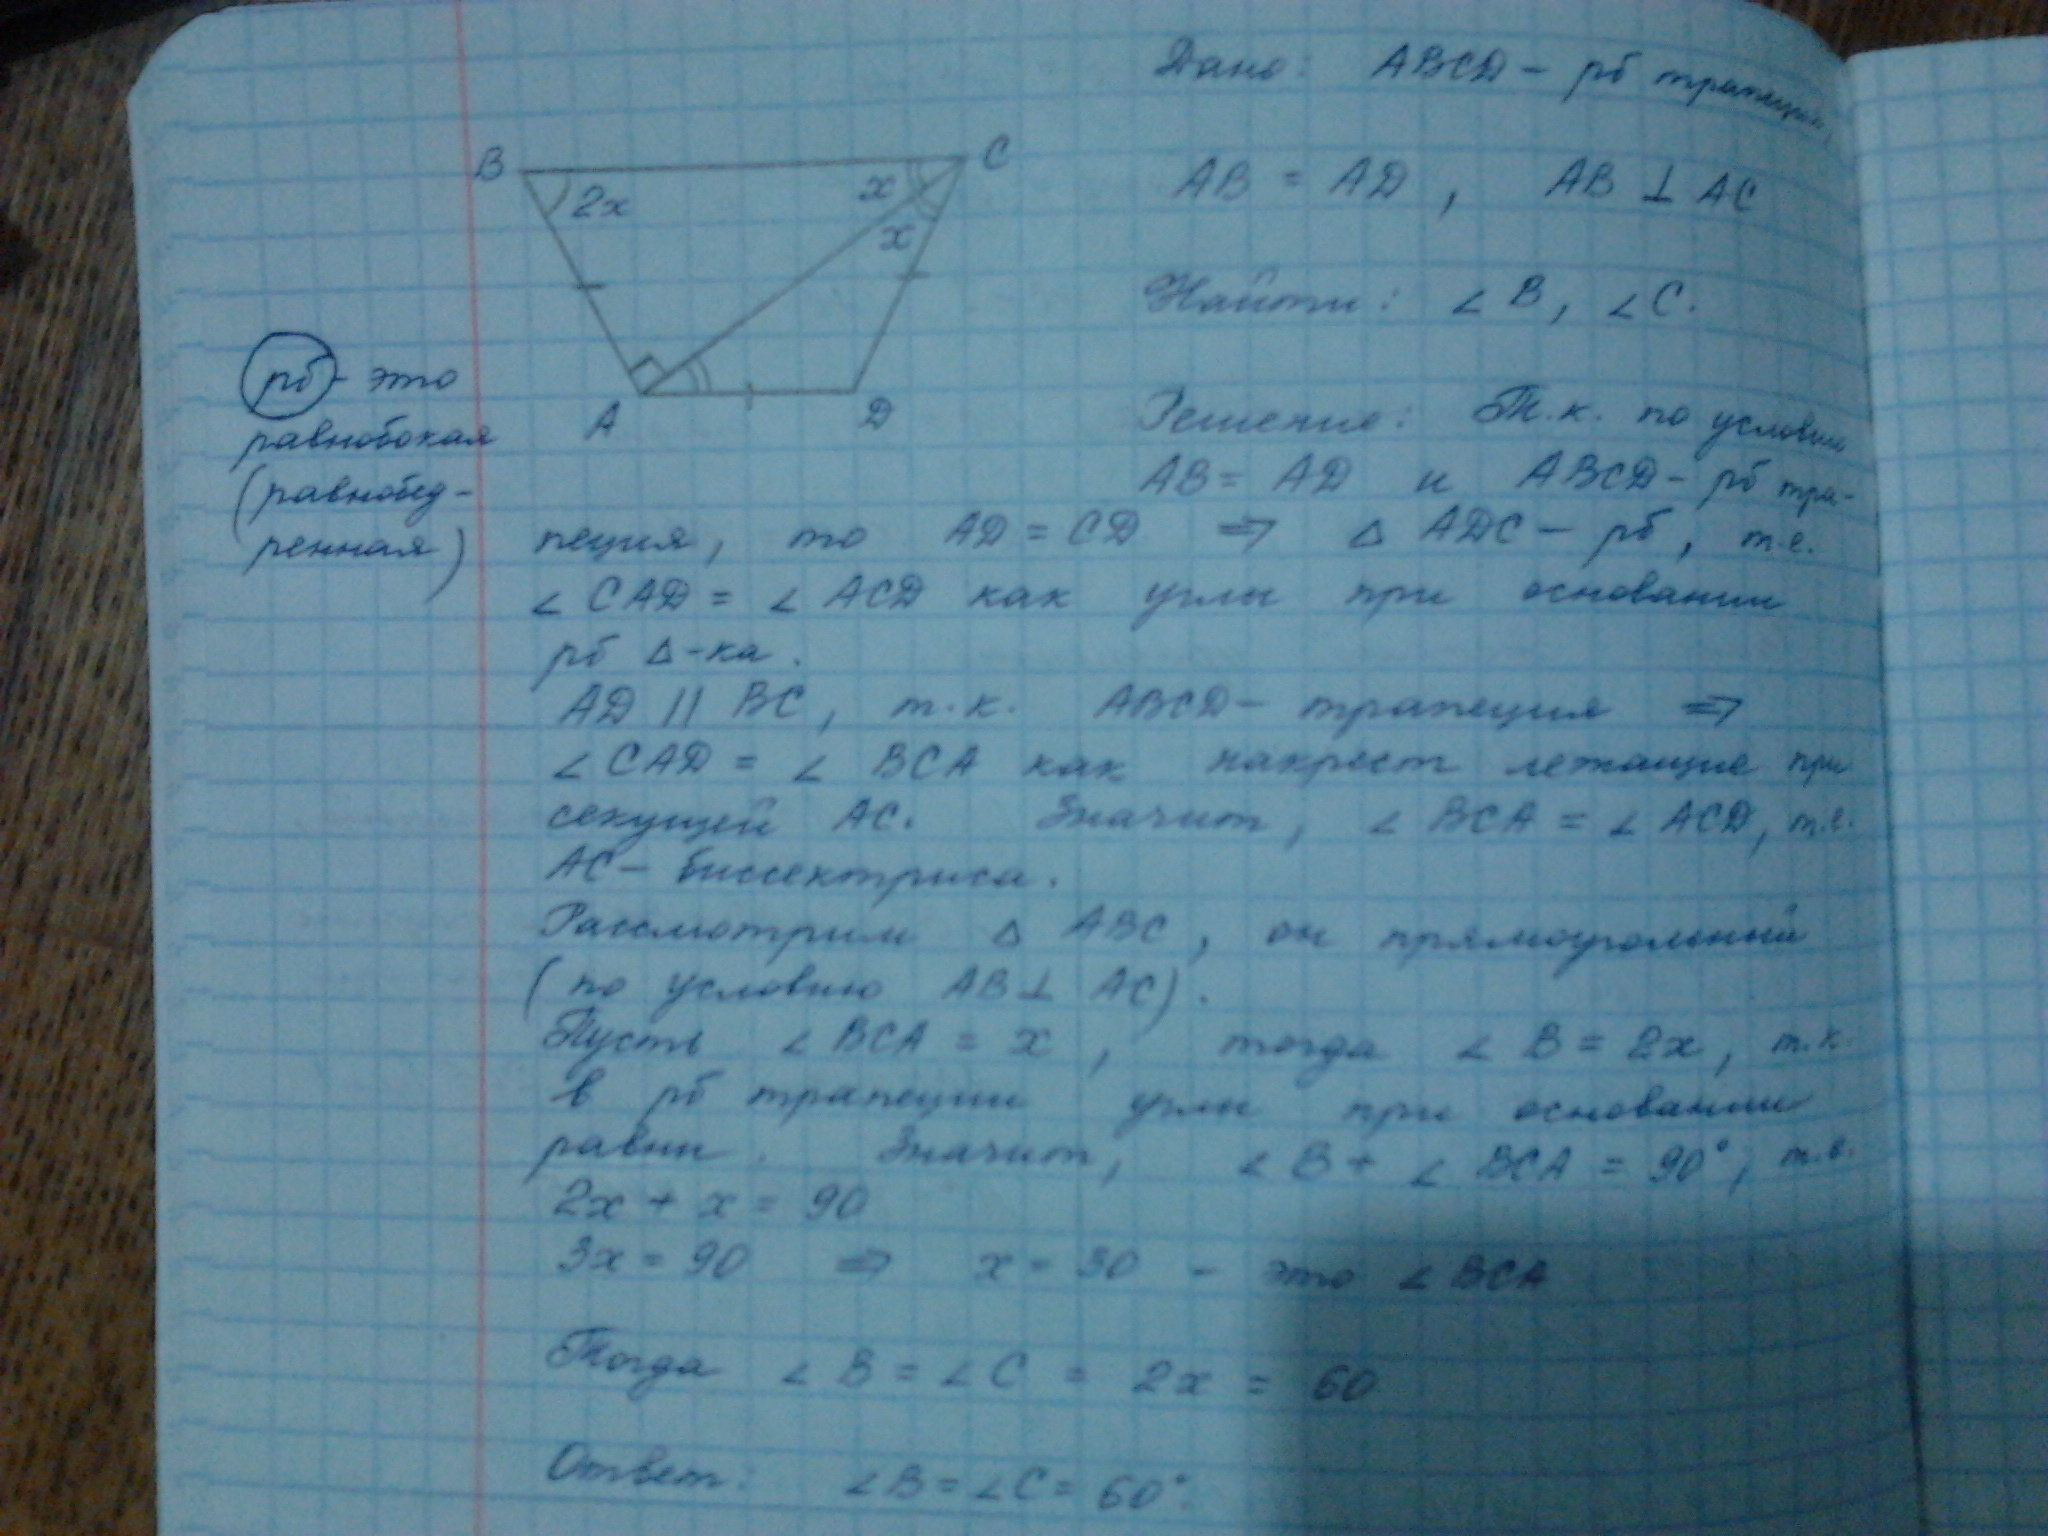 Дано: ABCD - рб трапеция,
B
C
2x
x
x
A
D
AB = AD, AB ⊥ AC
Найти: ∠B, ∠C.
рб - это
равнобокая
(равнобед-
ренная)
Решение: Т.к. по условию
AB = AD и ABCD - рб тра-
пеция, то AD = CD ⇒ △ ADC - рб, т.е.
∠CAD = ∠ACD как углы при основании
рб △-ка.
AD || BC, т.к. ABCD - трапеция ⇒
∠CAD = ∠BCA как накрест лежащие при
секущей AC. Значит, ∠BCA = ∠ACD, т.е.
AC - биссектриса.
Рассмотрим △ ABC, он прямоугольный
(по условию AB ⊥ AC).
Пусть ∠BCA = x, тогда ∠B = 2x, т.к.
в рб трапеции углы при основании
равны. Значит, ∠B + ∠BCA = 90°, т.е.
2x + x = 90
3x = 90 ⇒ x = 30 - это ∠BCA
Тогда ∠B = ∠C = 2x = 60
Ответ: ∠B = ∠C = 60°.